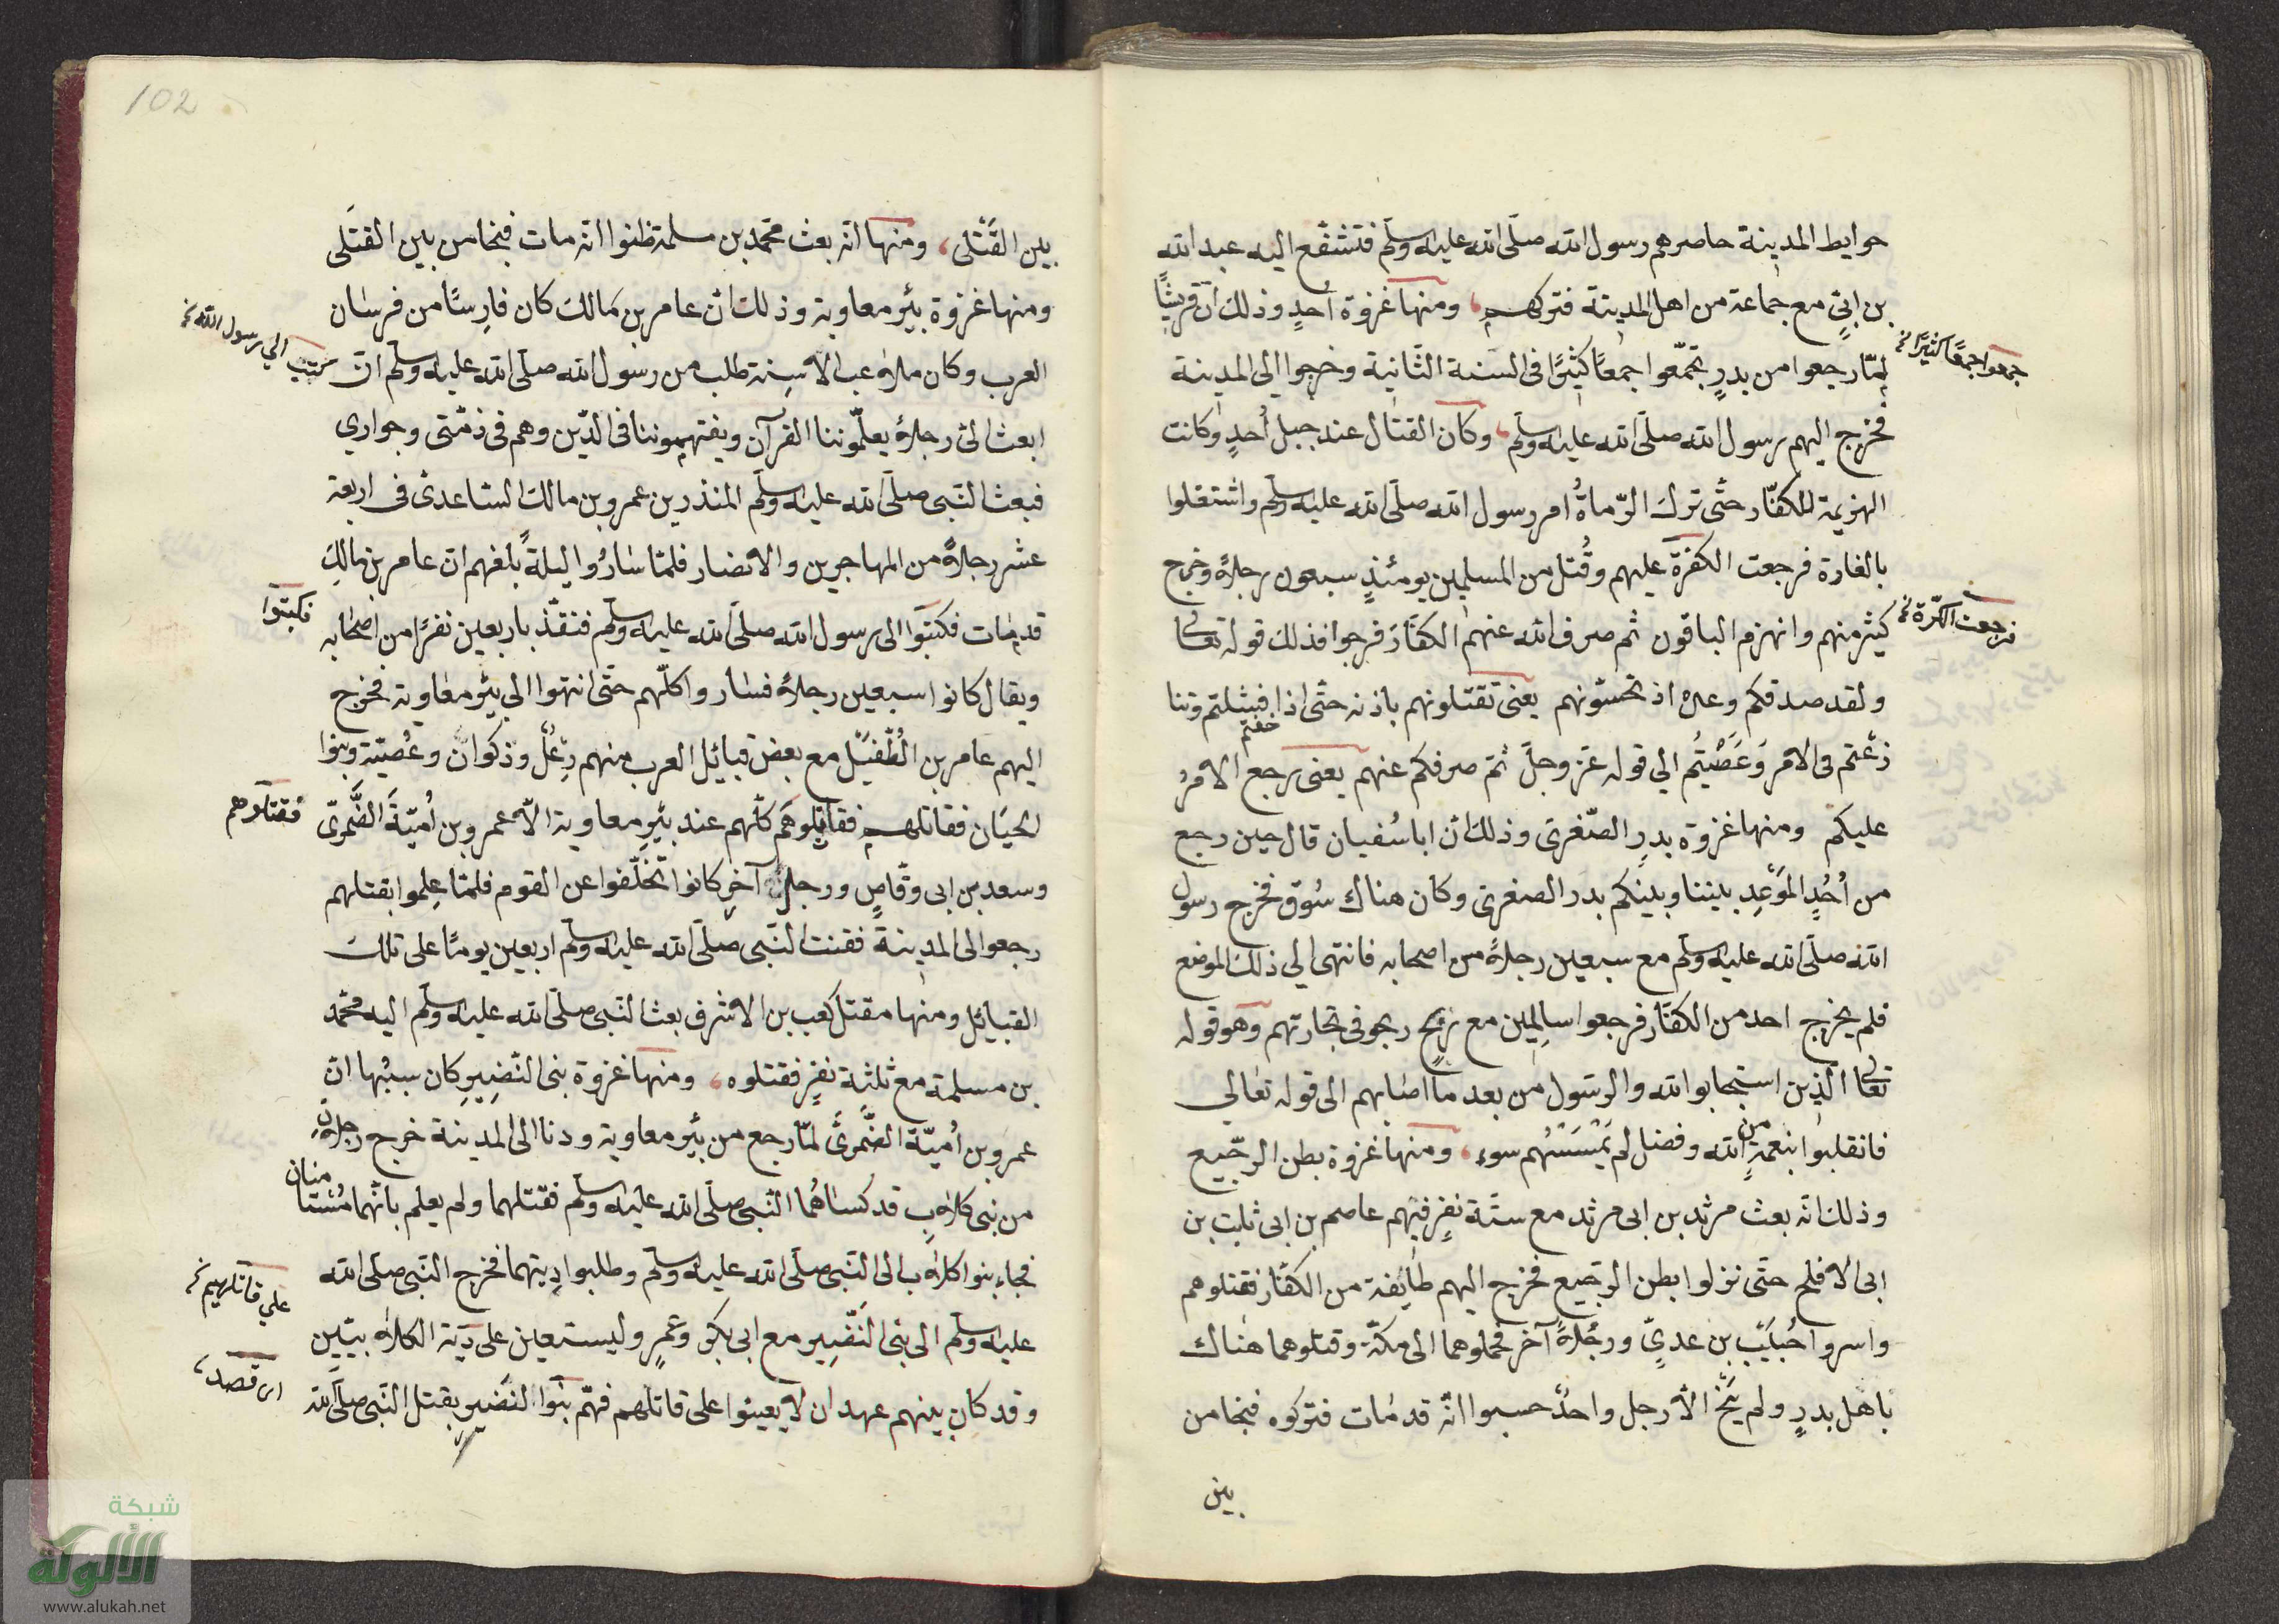 حوايط المدينة حاصرهم رسول الله صلى الله عليه وسلم فتشفع اليه عبد الله
بن ابيٍ مع جماعة من اهل المدينة فتركهم ومنها غزوة اُحدٍ وذلك ان قريشًا
لمّا رجعوا من بدرٍ تجمّعوا جمعًا كثيرًا فى السنة الثانية وخرجوا الى المدينة
جمعوا جمعًا كثيرًا
فخرج اليهم رسول الله صلى الله عليه وسلم وكان القتال عند جبل اُحدٍ وكانت
الهزيمة للكفّار حتّى ترك الرّماةُ امر رسول الله صلى الله عليه وسلم واشتغلوا
بالغارة فرجعت الكفرة عليهم وقُتل من المسلمين يومئذٍ سبعون رجلاً وخرج
فرجعت الكرّة
كثير منهم وانهزم الباقون ثم صرف الله عنهم الكفّار فرجوا فذلك قوله تعالى
ولقد صدقكم وعده اذ تحسّونهم يعنى تقتلونهم باذنه حتّى اذا فشلتم وتنا
خفتم
زعتم فى الامر وَعَصَيْتُم الي قوله عز وجلّ ثمّ صرفكم عنهم يعنى رجع الامرُ
عليكم ومنها غزوة بدرِ الصّغرى وذلك ان ابا سُفيان قال حين رجع
من اُحُدٍ الموَعِد بيننا وبينكم بدر الصغرى وكان هناك سُوق فخرج رسول
الله صلى الله عليه وسلم مع سبعين رجلاً من اصحابه فانتهى الي ذلك الموضع
فلم يخرج احد من الكفّار فرجعوا سالِمين مع ربحٍ ربحو فى تجارتهم وهو قوله
تعالى الّذين استجابوا لله والرسول من بعد ما اصابهم الى قوله تعالي
فانقلبوا بنعمةٍ من الله وفضل لم يَمْسَسْهُم سوء ومنها غزوة بطن الرجّيع
وذلك انّه بعث مرثد بن ابى مرثد مع ستّة نفرٍ فيهم عاصم بن ابى ثابت بن
ابى الافلح حتّى نزلوا بطن الرجّيع فخرج اليهم طائفة من الكفّار فقتلوهم
واسروا خُبَيْب بن عديٍّ ورجُلاً آخر فحملوهما الى مكّة وقتلوهما هناك
باهل بدرٍ ولم يَنْجُ الاّ رجل واحدٌ حسبوا انّه قد مات فتركوه فنجا من
بين
102
بين القَتْلى ومنها انّه بعث محمّد بن مسلمة ظنوا انّه مات فنجا من بين القتلى
ومنها غزوة بئر معاوية وذلك انّ عامر بن مالك كان فارِسًا من فرسان
العرب وكان ملاعب الاسِنة طلب من رسول الله صلى الله عليه وسلم ان
كتب الي رسول الله
ابعث الىّ رجلاً يعلّموننا القرآن ويفقهوننا فى الدّين وهم فى ذمّتى وجواري
فبعث النّبى صلى الله عليه وسلم المنذر بن عمرو بن مالك الساعدى فى اربعة
عشر رجلاً من المهاجرين والانصار فلمّا سارُوا ليلةً بلغهم ان عامر بن مالك
قد مات فكتبوا الى رسول الله صلى الله عليه وسلم فنفّذ باربعين نفرًا من اصحابه
فكتبوا
ويقال كانوا سبعين رجلاً فساروا كلّهم حتّى انتهوا الي بئر معاوية فخرج
اليهم عامر بن الطُّفَيْل مع بعض قبائل العرب منهم رِعْل وذكوان وعُصيّة وبنوا
لحيَان فقاتلهم فقاتلوهم كلّهم عند بئرِ معاوية الاّ عمرو بن اُميّةَ الضَّمرىّ
فقتلوهم
وسعد بن ابى وقّاصٍ ورجل آخر كانوا تخلّفوا عن القوم فلمّا علِموا بقتلهم
رجعوا الى المدينة فقنت النّبى صلى الله عليه وسلم اربعين يومًا على تلك
القبائل ومنها مقتل كعب بن الاشرف بعث النّبى صلى الله عليه وسلم اليه محمّد
بن مسلمة مع ثلثة نفرٍ فقتلوه ومنها غزوة بنى النّضِيرِ كان سببُها انّ
عمرو بن اُميّة الضَّمرىّ لمّا رجع من بئر معاوية ودنا الى المدينة خرج رجلانِ
من بنى كلابِ قد كساهُما النّبى صلى الله عليه وسلم فقتلهما ولم يعلم بانّهما مُستامنان
فجاء بنوا كلاب الى النّبى صلى الله عليه وسلم وطلبوا دِيتهما فخرج النّبى صلى الله
عليه وسلم الى بنى النّضِير مع ابى بكر وعمرٍ وليستعين على دَية الكلابيّين
علي قاتلهم
وقد كان بينهم عهد ان لا يعينوا على قاتلهم فهمّ بنوا النضير بقتل النّبى صلى الله
اى قصد
شبكة
الألوكة
www.alukah.net